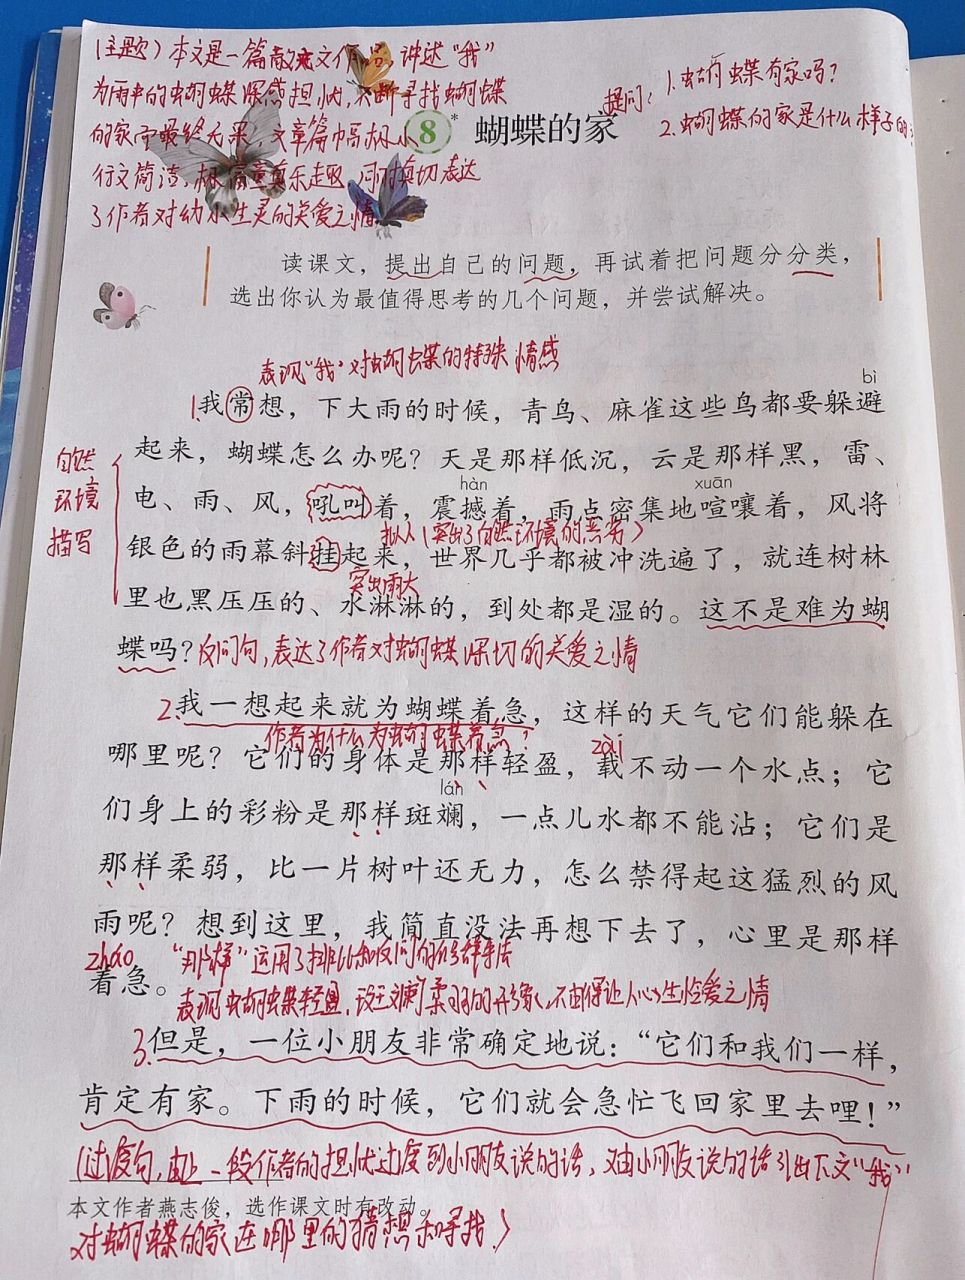 (主题)本文是一篇散文作品,讲述“我”
为雨中的蝴蝶深感担忧,不断寻找蝴蝶
的家而最终无果,文章篇幅
行文简洁,极富童真乐趣,同时真切表达
了作者对幼小生灵的关爱之情
提问:1.蝴蝶有家吗?
2.蝴蝶的家是什么样子的
8* 蝴蝶的家
读课文,提出自己的问题,再试着把问题分分类,
选出你认为最值得思考的几个问题,并尝试解决。
表现“我”对蝴蝶的特殊情感
bì
1.我常想,下大雨的时候,青鸟、麻雀这些鸟都要躲避
自然
环境
描写
起来,蝴蝶怎么办呢?天是那样低沉,云是那样黑,雷、
hàn xuān
电、雨、风,吼叫着,震撼着,雨点密集地喧嚷着,风将
拟人(突出了自然环境的恶劣)
银色的雨幕斜挂起来,世界几乎都被冲洗遍了,就连树林
突出雨大
里也黑压压的、水淋淋的,到处都是湿的。这不是难为蝴
蝶吗?反问句,表达了作者对蝴蝶深切的关爱之情
2.我一想起来就为蝴蝶着急,这样的天气它们能躲在
作者为什么为蝴蝶着急? zài
哪里呢?它们的身体是那样轻盈,载不动一个水点;它
lán
们身上的彩粉是那样斑斓,一点儿水都不能沾;它们是
那样柔弱,比一片树叶还无力,怎么禁得起这猛烈的风
雨呢?想到这里,我简直没法再想下去了,心里是那样
zháo “那样”运用了排比和反问的修辞手法
着急。
表现蝴蝶轻盈、斑斓柔弱的形象,不由得让人心生怜爱之情
3.但是,一位小朋友非常确定地说:“它们和我们一样,
肯定有家。下雨的时候,它们就会急忙飞回家里去哩!”
(过渡句,由上一段作者的担忧过度到小朋友说的话,又由小朋友说的话引出下文“我”
本文作者燕志俊,选作课文时有改动。
对蝴蝶的家在哪里的猜想和寻找。)